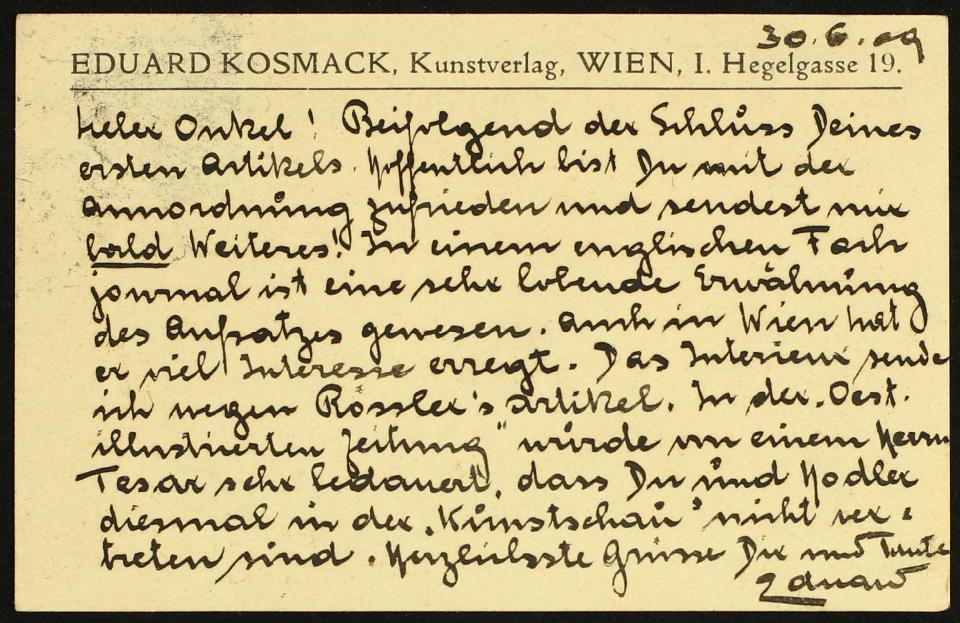 30.6.09
EDUARD KOSMACK, Kunstverlag, WIEN, I. Hegelgasse 19.
Lieber Onkel! Beifolgend der Schluss Deines
ersten Artikels. Hoffentlich bist Du mit der
Annordnung zufrieden und sendest mir
bald Weiteres! In einem englischen Fach
journal ist eine sehr lobende Erwähnung
des Aufsatzes gewesen. Auch in Wien hat
er viel Interesse erregt. Das Interieur sende
ich wegen Rössler's Artikel. In der „Oest.
illustrierten Zeitung" wurde von einem Herrn
Tesar sehr bedauert, dass Du und Hodler
diesmal in der „Kunstschau" nicht ver-
treten sind. Herzlichste Grüsse Dir und Tante
Eduard